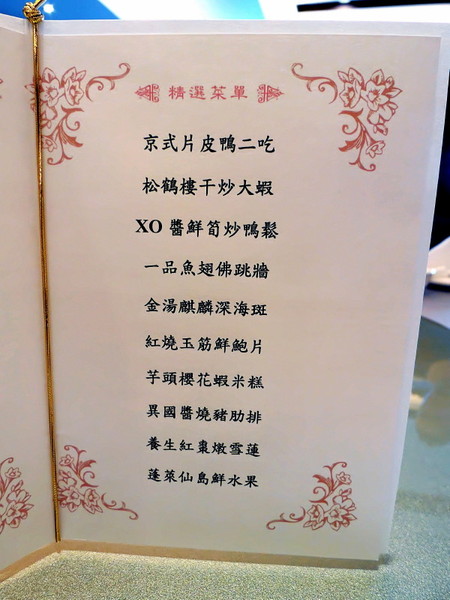 精選菜單
京式片皮鴨二吃
松鶴樓干炒大蝦
XO 醬鮮筍炒鴨鬆
一品魚翅佛跳牆
金湯麒麟深海斑
紅燒玉筋鮮鮑片
芋頭櫻花蝦米糕
異國醬燒豬肋排
養生紅棗燉雪蓮
蓬萊仙島鮮水果